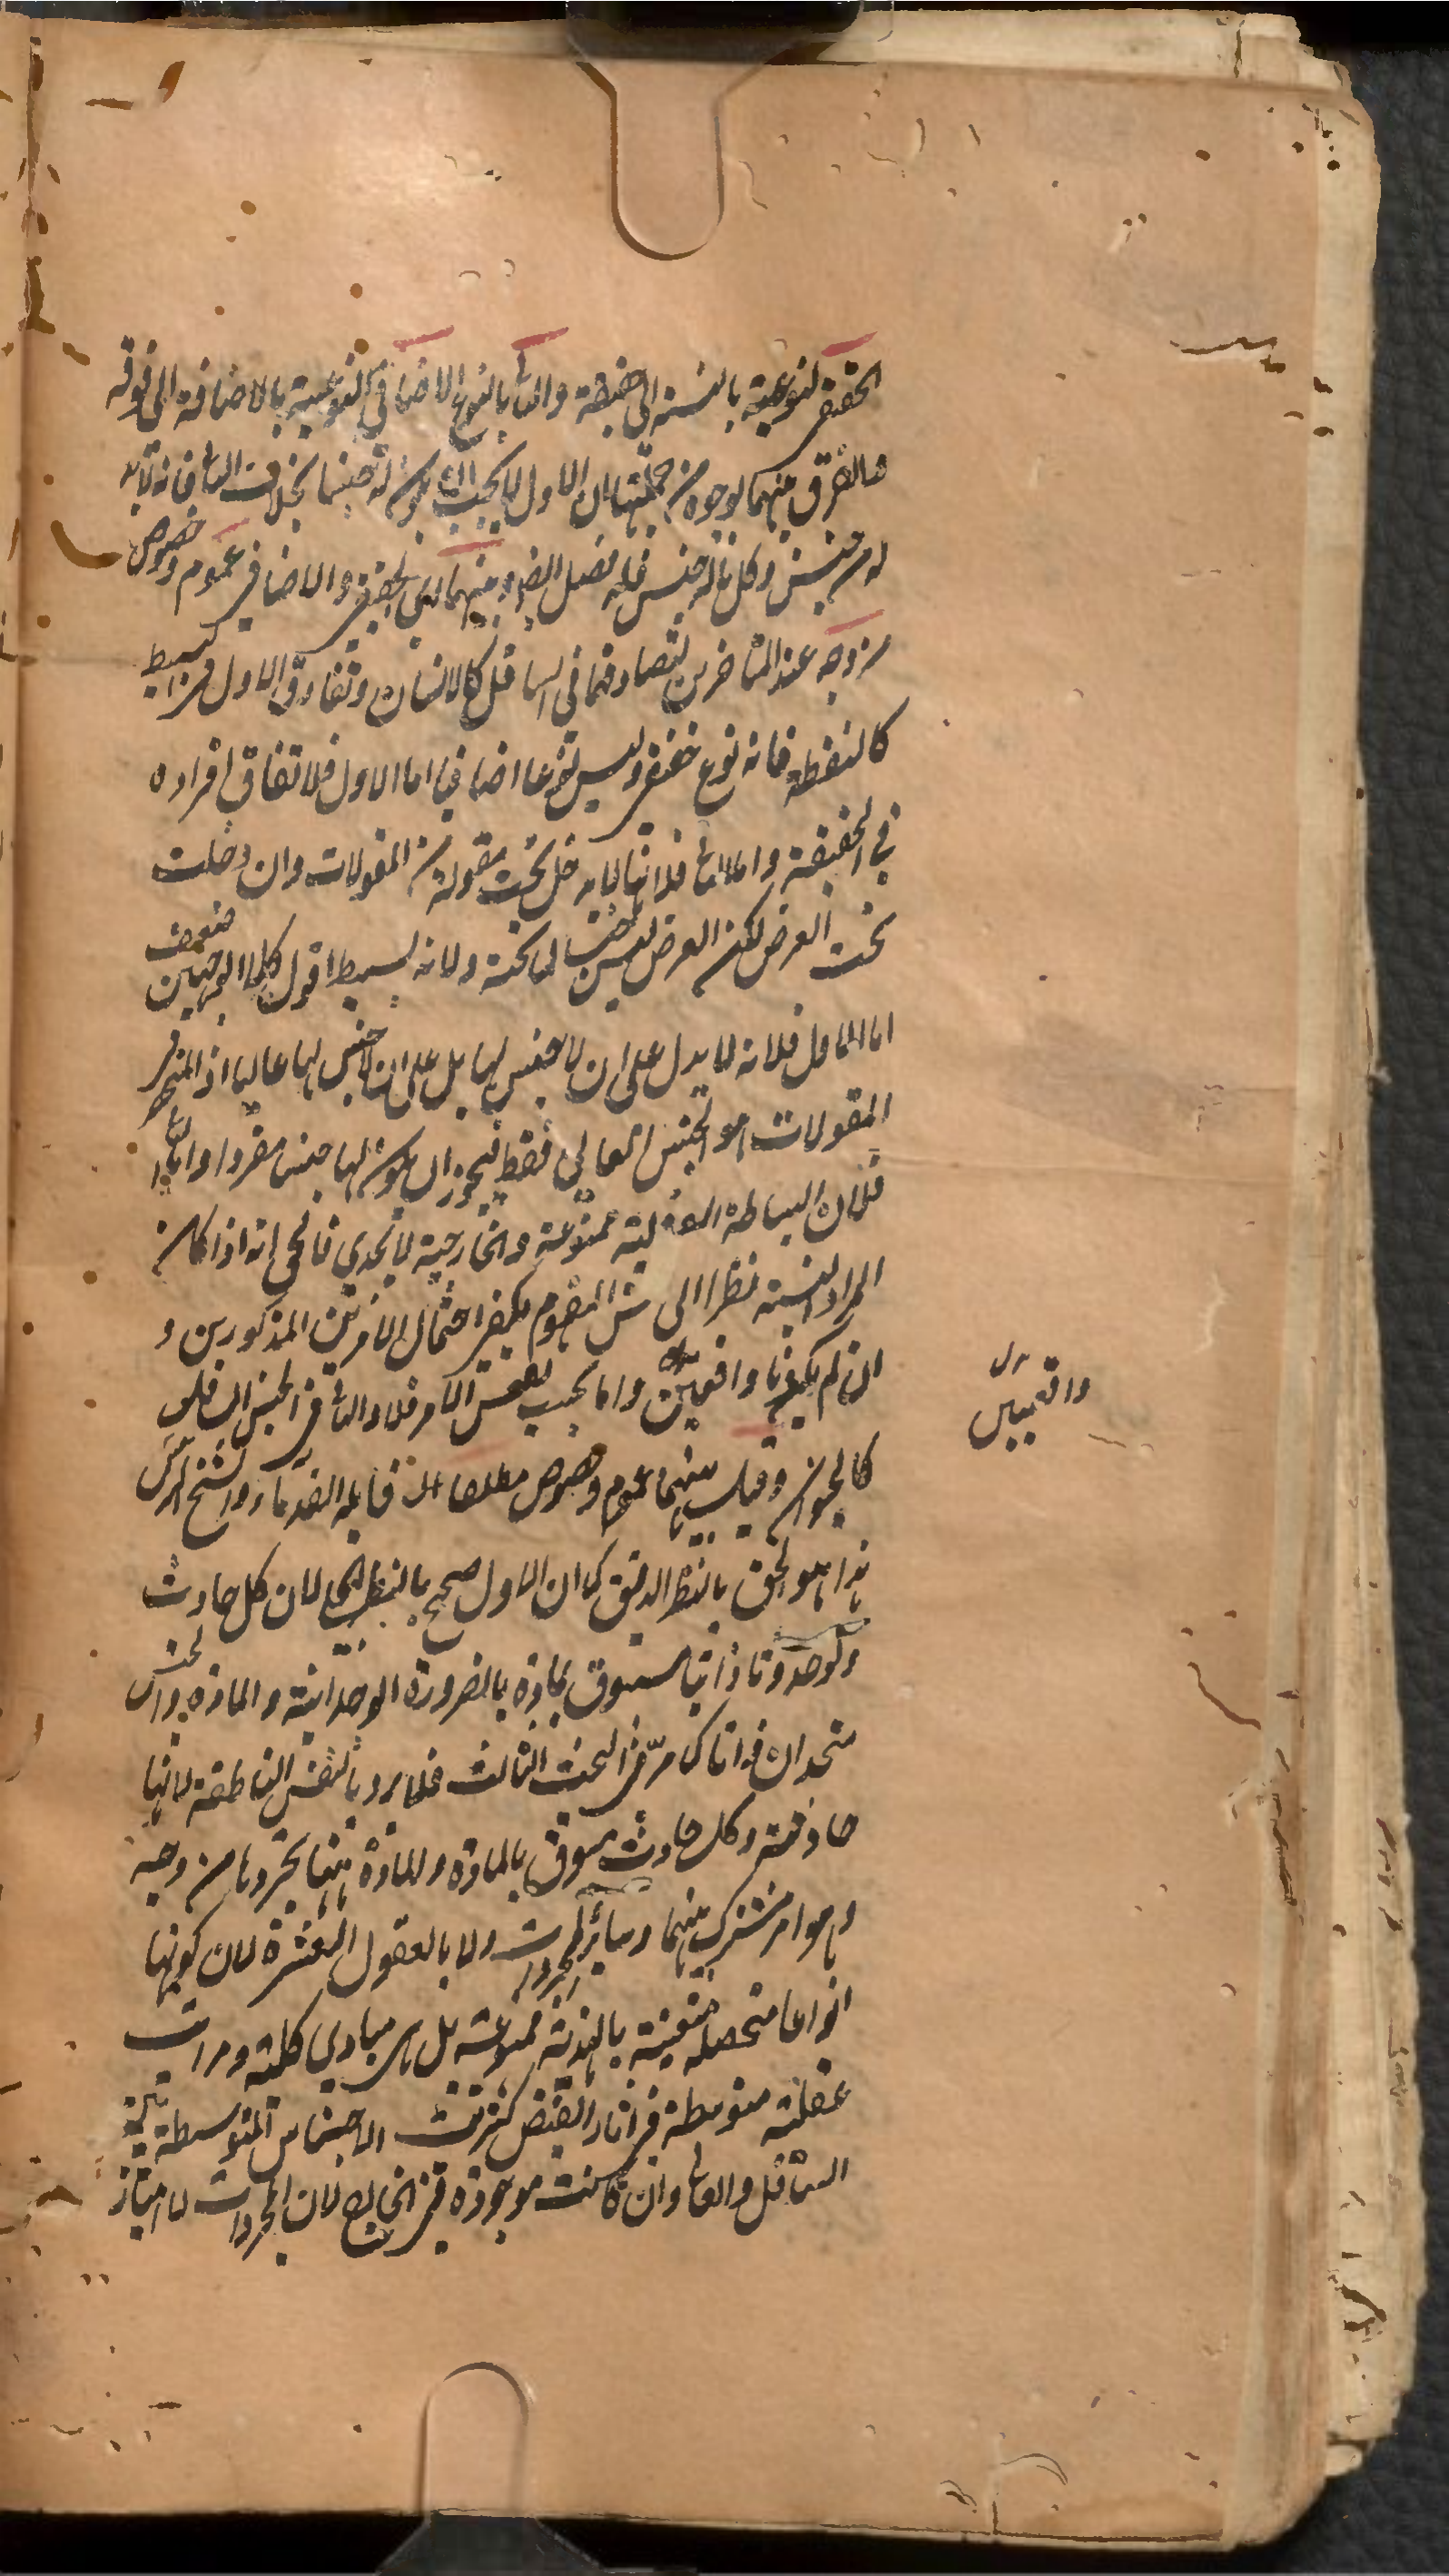 الحقيقي لنوعيته بالنسبة الى حقيقة والثاني بالنوع الاضافي لنوعيته بالاضافة الى فوقه
فالفرق بينهما بوجوه من جملتها ان الاول لا يجب ان يكون له جنس بخلاف الثاني فانه لابد
له من جنس وكل ما له جنس فله فصل البتة وبينهما اي الحقيقي والاضافي عموم وخصوص
من وجه عند المتأخرين لتصادقهما في السافل كالانسان وتفارق الاول في البسيط
كالنقطة فانه نوع حقيقي وليس نوعا اضافيا اما الاول فلاتفاق افراده
في الحقيقة واما الثاني فلانها لا يدخل تحت مقولة من المقولات وان دخلت
تحت العرض لكن العرض ليس جنسا لما تحته ولانه بسيط اقول كلا الوجهين ضعيف
اما الاول فلانه لا يدل على ان لا جنس لها بل على ان لا جنس لها عاليا اذ المنحصر في
المقولات هو الجنس العالي فقط فيجوز ان يكون لها جنس مفردا واما الثاني
فلان البساطة العقلية ممنوعة والخارجية لا تجدي فالحق انه اذا كان
المراد النسبة نظرا الى نفس المفهوم يكفي احتمال الامرين المذكورين و
ان لم يكونا واقعيين واما بحسب نفس الامر فلا والثاني في الجنس السافل
كالحيوان وقيل بينهما عموم وخصوص مطلقا قابله القدماء والشيخ الرئيس
هذا هو الحق بالنظر الدقيق كما ان الاول صحيح بالنظر الجلي لان كل حادث
ولو حدوثا ذاتيا مسبوق بمادة بالضرورة الوجدانية والمادة والجنس
متحدان ذاتا كما مر في البحث الثالث فلا يرد بالنفس الناطقة لانها
حادثة وكل حادث مسبوق بالمادة والمادة ههنا تجردها من وجه
وهو امر مشترك بينهما وسائر المجردات ولا بالعقول العشرة لان كونها
انواعا متحصلة متعينة بالهذية ممنوعة بل هي مبادي كلية ومراتب
عقلية متوسطة في افادة الفيض كمرتبة الاجناس المتوسطة بين
السافل والعالي وان كانت موجودة في الخارج لان المجردات لا امتياز
واقعيين